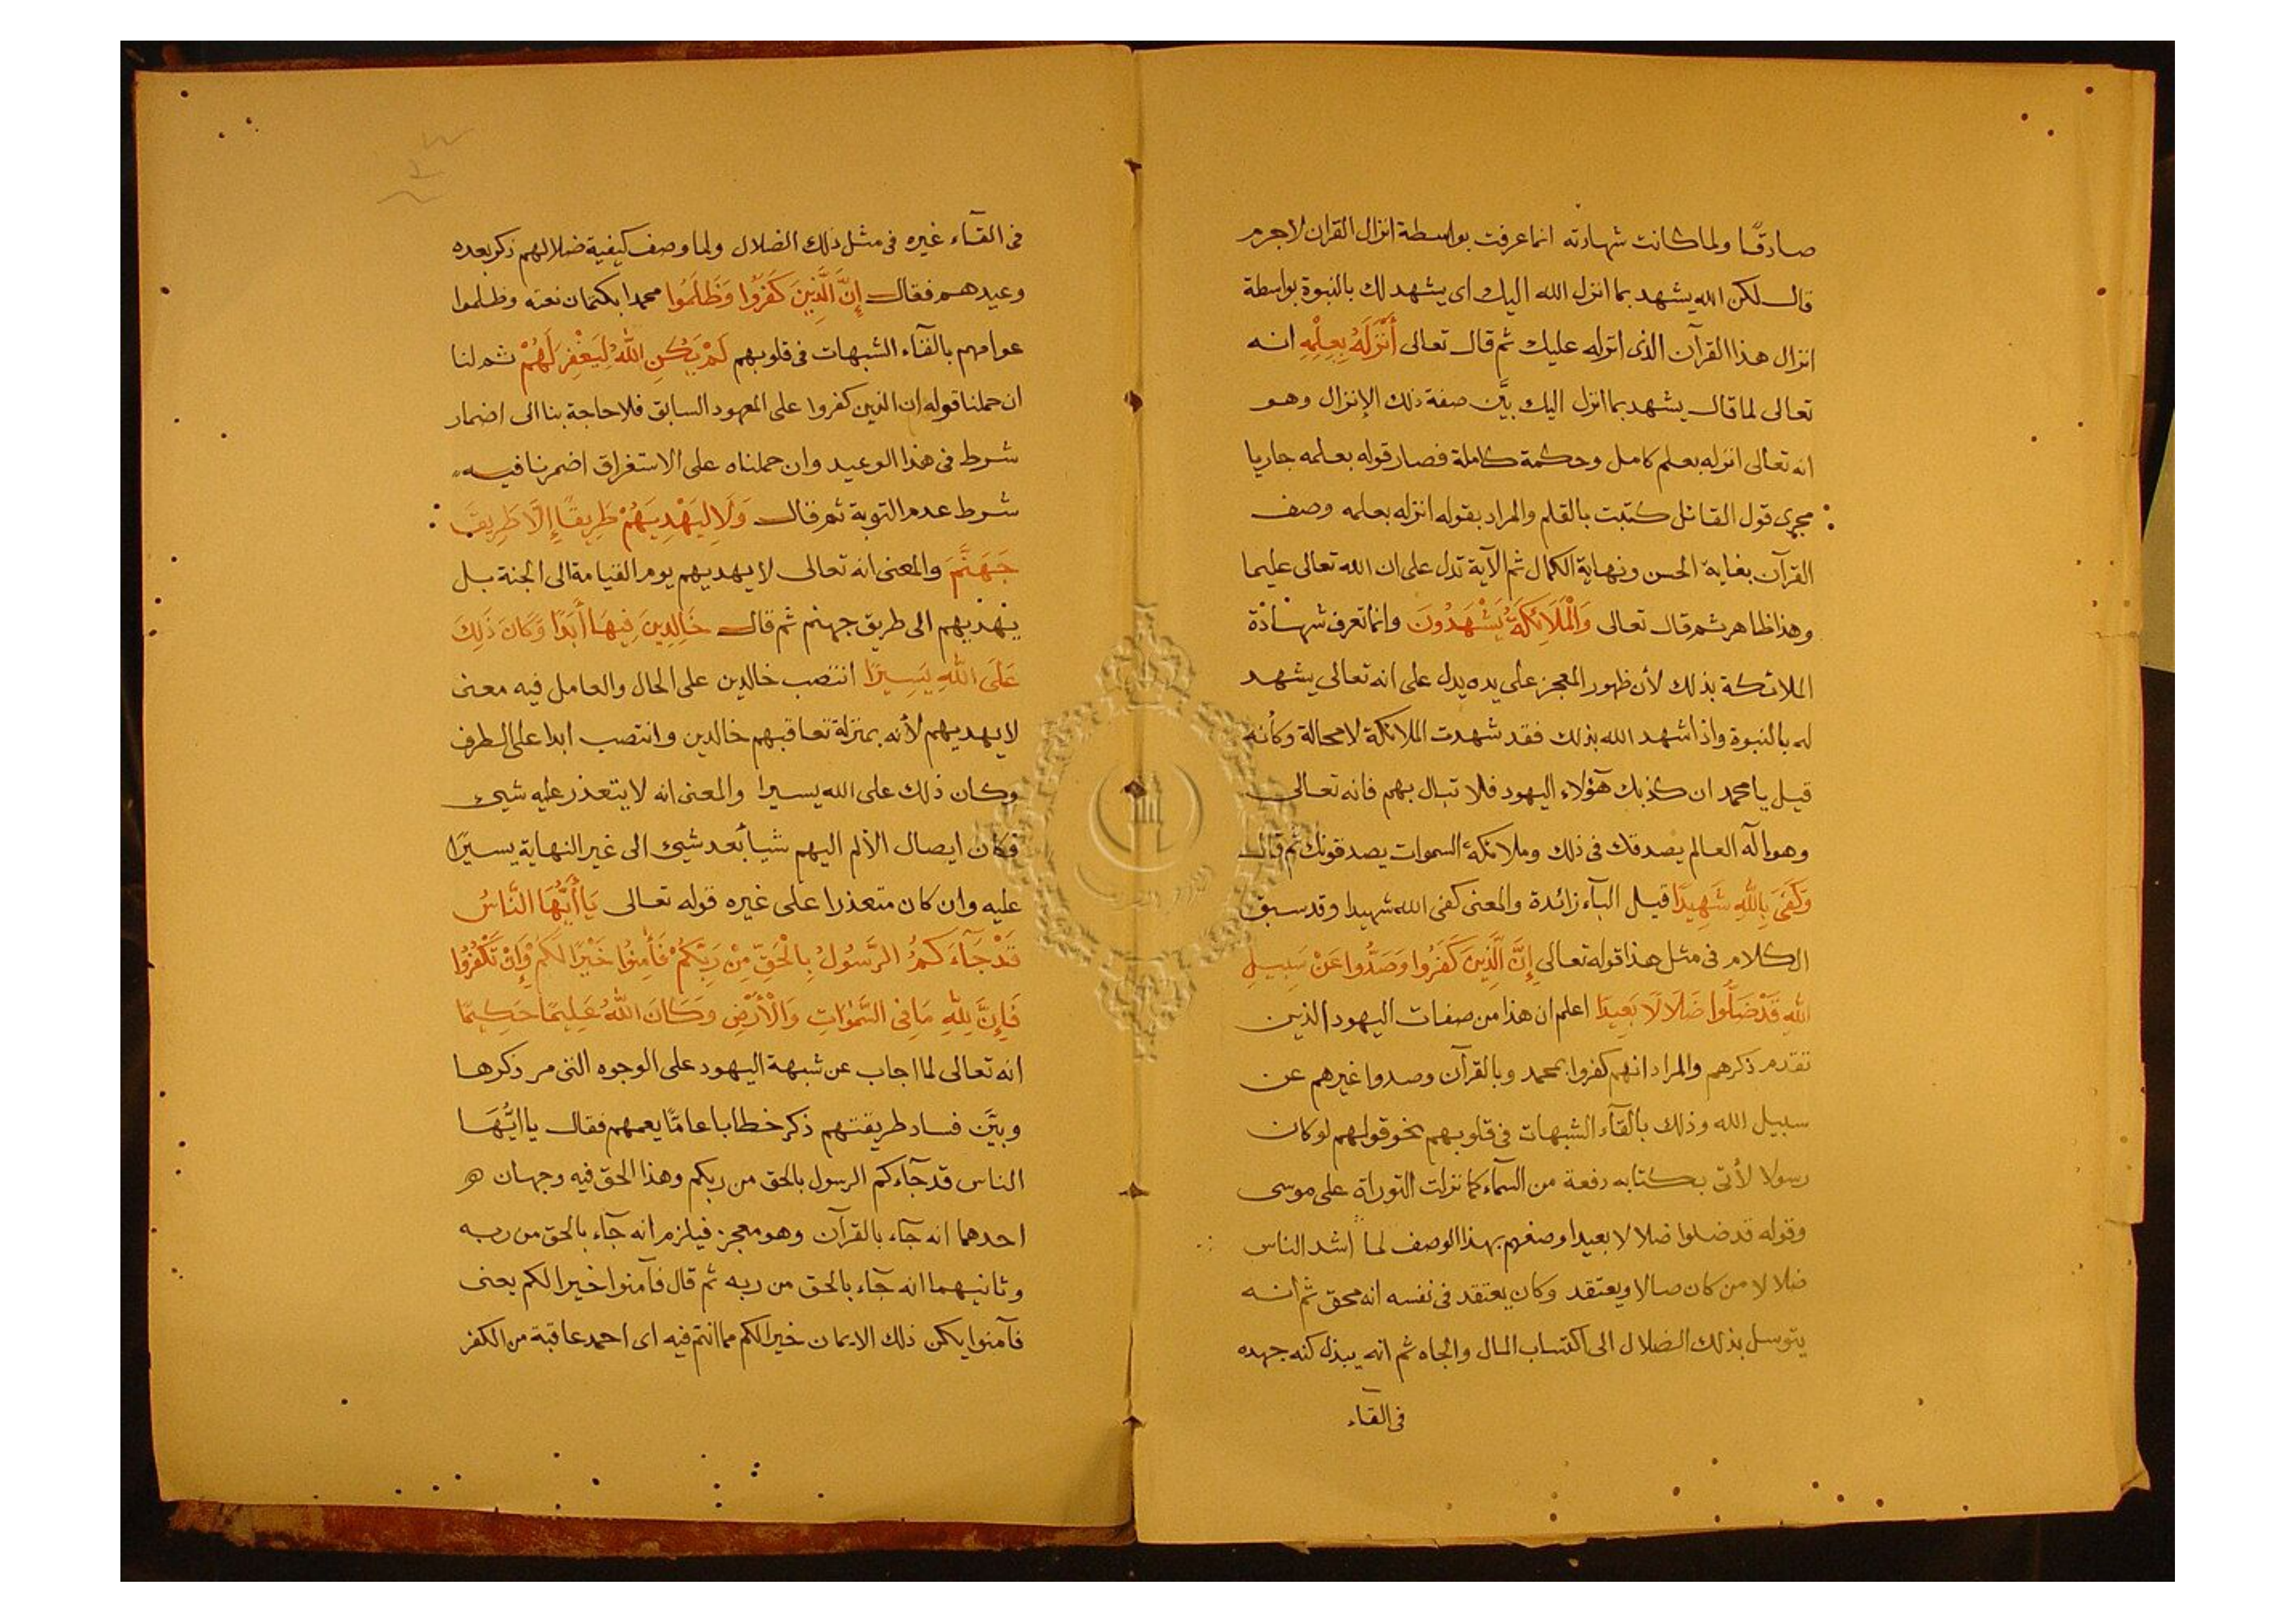 صادقًا ولما كانت شهادته انما عرفت بواسطة انزال القران لاجرم
قال لكن الله يشهد بما انزل الله اليك اى يشهد لك بالنبوة بواسطة
انزال هذا القرآن الذى انزله عليك ثم قال تعالى أَنْزَلَهُ بِعِلْمِهِ انه
تعالى لما قال يشهد بما انزل اليك بيَّن صفة ذلك الإنزال وهو
انه تعالى انزله بعلم كامل وحكمة كاملة فصار قوله بعلمه جاريا
مجرى قول القائل كتبت بالقلم والمراد بقوله انزله بعلمه وصف
القرآن بغاية الحسن ونهاية الكمال ثم الآية تدل على ان الله تعالى عليما
وهذا ظاهر ثم قال تعالى وَالْمَلَائِكَةُ يَشْهَدُونَ وانما تعرف شهادة
الملائكة بذلك لأن ظهور المعجز على يده يدل على انه تعالى يشهد
له بالنبوة واذا شهد الله بذلك فقد شهدت الملائكة لا محالة وكأنه
قيل يا محمد ان كذبك هؤلاء اليهود فلا تبال بهم فانه تعالى
وهو اله العالم يصدقك فى ذلك وملائكة السموات يصدقونك ثم قال
وَكَفَىٰ بِاللهِ شَهِيدًا قيل البآء زائدة والمعنى كفى الله شهيدا وقد سبق
الكلام فى مثل هذا قوله تعالى إِنَّ الَّذِينَ كَفَرُوا وَصَدُّوا عَنْ سَبِيلِ
اللهِ قَدْ ضَلُّوا ضَلَالًا بَعِيدًا اعلم ان هذا من صفات اليهود الذين
تقدم ذكرهم والمراد انهم كفروا بمحمد وبالقرآن وصدوا غيرهم عن
سبيل الله وذلك بالقآء الشبهات فى قلوبهم نحو قولهم لو كان
رسولا لأتى بكتابه دفعة من السمآء كما نزلت التوراة على موسى
وقوله قد ضلوا ضلالا بعيدا وصفهم بهذا الوصف لما اشد الناس
ضلالا من كان ضالا ويعتقد وكان يعتقد فى نفسه انه محق ثم انه
يتوسل بذلك الضلال الى اكتساب المال والجاه ثم انه يبذل كنه جهده
فى القآء
فى القآء غيره فى مثل ذلك الضلال ولما وصف كيفية ضلالهم ذكر بعده
وعيدهم فقال إِنَّ الَّذِينَ كَفَرُوا وَظَلَمُوا محمدا بكتمان نعته وظلموا
عوامهم بالقآء الشبهات فى قلوبهم لَمْ يَكُنِ اللهُ لِيَغْفِرَ لَهُمْ ثم لنا
ان حملنا قوله ان الذين كفروا على المعهود السابق فلا حاجة بنا الى اضمار
شرط فى هذا الوعيد وان حملناه على الاستغراق اضمرنا فيه
شرط عدم التوبة ثم قال وَلَا لِيَهْدِيَهُمْ طَرِيقًا إِلَّا طَرِيقَ
جَهَنَّمَ والمعنى انه تعالى لا يهديهم يوم القيامة الى الجنة بل
يهديهم الى طريق جهنم ثم قال خَالِدِينَ فِيهَا أَبَدًا وَكَانَ ذَلِكَ
عَلَى اللهِ يَسِيرًا انتصب خالدين على الحال والعامل فيه معنى
لا يهديهم لأنه بمنزلة نعاقبهم خالدين وانتصب ابدا على الظرف
وكان ذلك على الله يسيرا والمعنى انه لا يتعذر عليه شيئ
فكان ايصال الألم اليهم شيأ بعد شيئ الى غير النهاية يسيرًا
عليه وان كان متعذرا على غيره قوله تعالى يَا أَيُّهَا النَّاسُ
قَدْ جَآءَكُمُ الرَّسُولُ بِالْحَقِّ مِنْ رَبِّكُمْ فَأٰمِنُوا خَيْرًا لَكُمْ وَإِنْ تَكْفُرُوا
فَإِنَّ لِلّٰهِ مَا فِى السَّمٰوَاتِ وَالْأَرْضِ وَكَانَ اللهُ عَلِيمًا حَكِيمًا
انه تعالى لما اجاب عن شبهة اليهود على الوجوه التى مر ذكرها
وبيَّن فساد طريقتهم ذكر خطابا عامًّا يعمهم فقال يا ايُّهَا
الناس قد جآءكم الرسول بالحق من ربكم وهذا الحق فيه وجهان
احدهما انه جآء بالقرآن وهو معجز فيلزم انه جآء بالحق من ربه
وثانيهما انه جآء بالحق من ربه ثم قال فآمنوا خيرا لكم يعنى
فآمنوا يكن ذلك الايمان خيرا لكم مما انتم فيه اى احمد عاقبة من الكفر